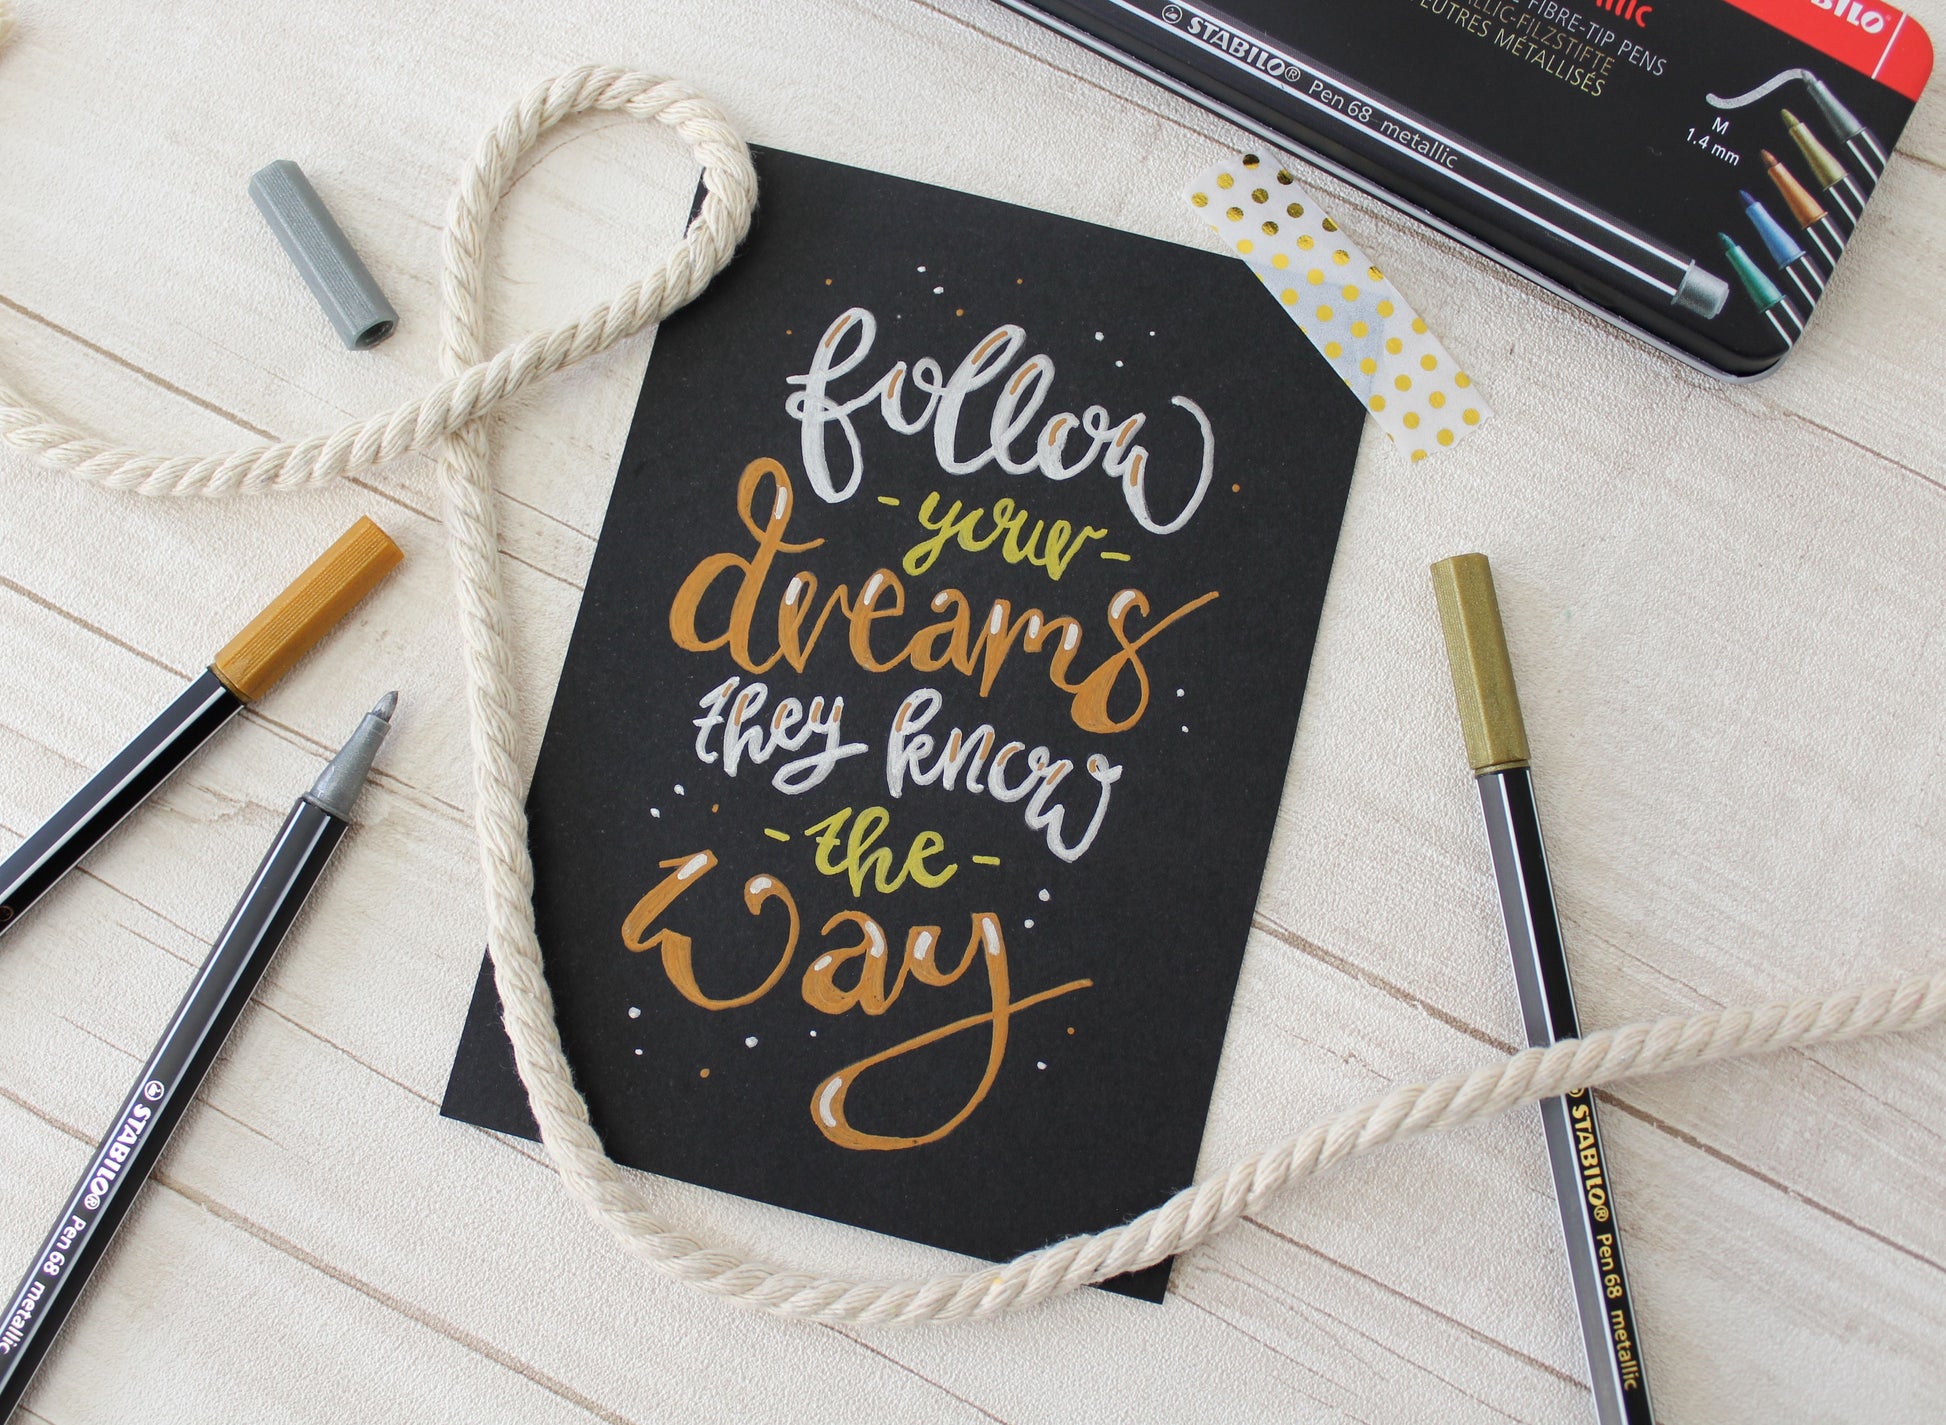 follow
- your -
dreams
they know
- the -
way
STABILO® Pen 68 metallic
FIBRE-TIP PENS
METALLIC-FILZSTIFTE
FEUTRES MÉTALLISÉS
M
1.4 mm
STABILO® Pen 68 metallic
STABILO® Pen 68 metallic